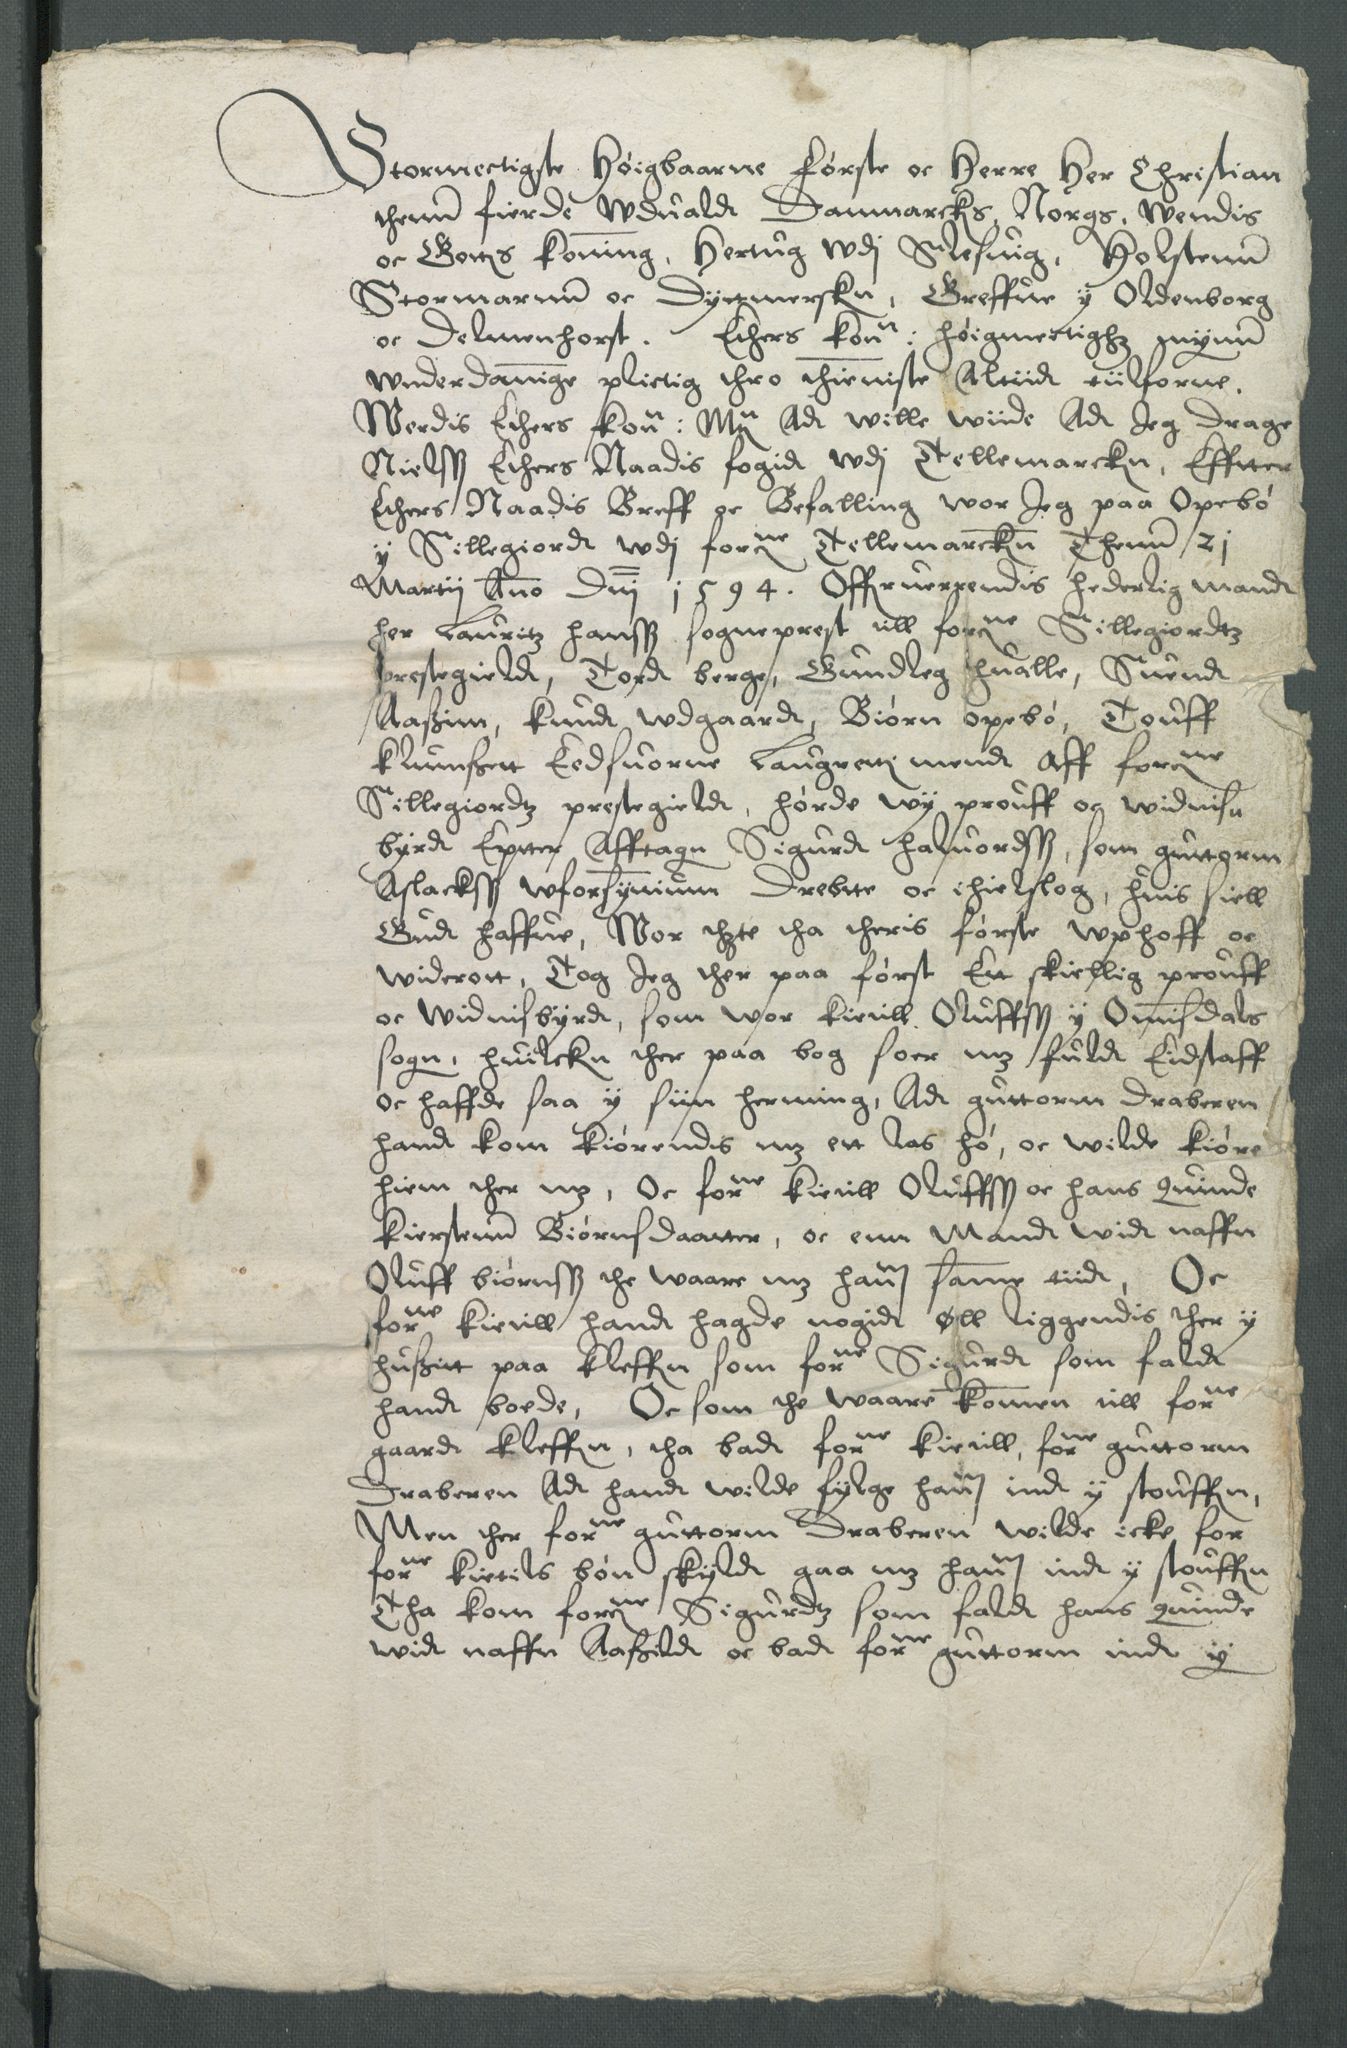 Stormectigste Høigbaarne Første oc Herre Her Christian
thenn fierde Wduald Danmarcks, Norgs, Wendis
oc Gottis koning, Hertug wdj Slesuig, Holstenn
Stormarnn oc Dytmerskn, Greffue ÿ Oldenborg
oc Delmenhorst. Ethers kon: høigmectighz mÿnn
wnderdanige plictig thro thieniste Altiid tiilforne.
Werdis Ethers kon: Mtt Ad wille wiide Ad Jeg Drage
Nielsß Ethers Naadis fogid wdj Tellemarckn, Effter
Ethers Naadis Breff oc Befalling wor Jeg paa Opebø
ÿ Sillegiord wdj forne Tellemarckn Thenn 21
Martij Ano Dnj 1594. Offueruerrendis hederlig mand
her Lauritz hansß sogneprest till forne Sillegiordtz
prestegield, Tord berge, Gundleg hualle, Suend
Aaßim, knud wdgaard, Biørn opebø, Touff
klumßett Eedsuorne Laugrettis mend Aff forne
Sillegiordtz prestegield, hørde wÿ prouff oc widnisn
bÿrd Epter Afftagn Sigurd haluordsß, som guttorm
Aslacksß wforsÿnium Drebte oc ihielslog, huis siell
Gud haffue, Wor thte tha theris første wphoff oc
widerott, Tog Jeg ther paa først Ett skiellig prouff
oc widnisbÿrd, som wor kietill Oluffsß ÿ Omisdals
sogn, huilckn ther paa bog soer mz fuld Eidstaff
oc haffde saa ÿ siin herming, Ad guttorm Draberen
hand kom kiørendis mz ett las hø, oc wilde kiøre
hiem ther mz, Oc forne kietill Oluffsß oc hans quinde
kierstenn Biørnsdaatter, oc enn Mand wid naffn
Oluff biørnsß the waare mz hanß same tiid, Oc
forne kietill hand hagde nogid øll liggendis ther ÿ
hußitt paa kleffn som forne Sigurd som fald
hand boede, Oc som the waare komen till forne
gaard kleffn, tha bad forne kietill, forne guttorm
Draberen Ad hand wilde fylge hanß ind ÿ stouffn,
Men ther forne guttorm Draberen wilde icke for
forne kietils bøn skÿld gaa mz hanß ind ÿ stouffn
Tha kom forne Sigurdtz som fald hans quinde
wid naffn Aaßild oc bad forne guttorm ind ÿ